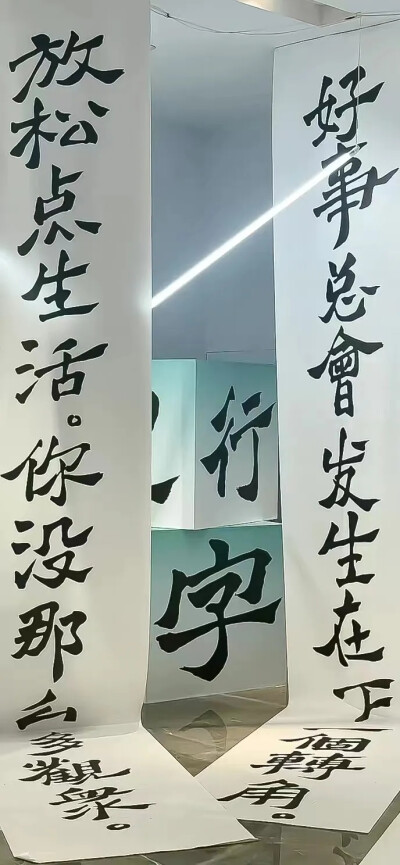 好事总會发生在下一個轉角。
行
字
放松点生活。你没那么多觀衆。